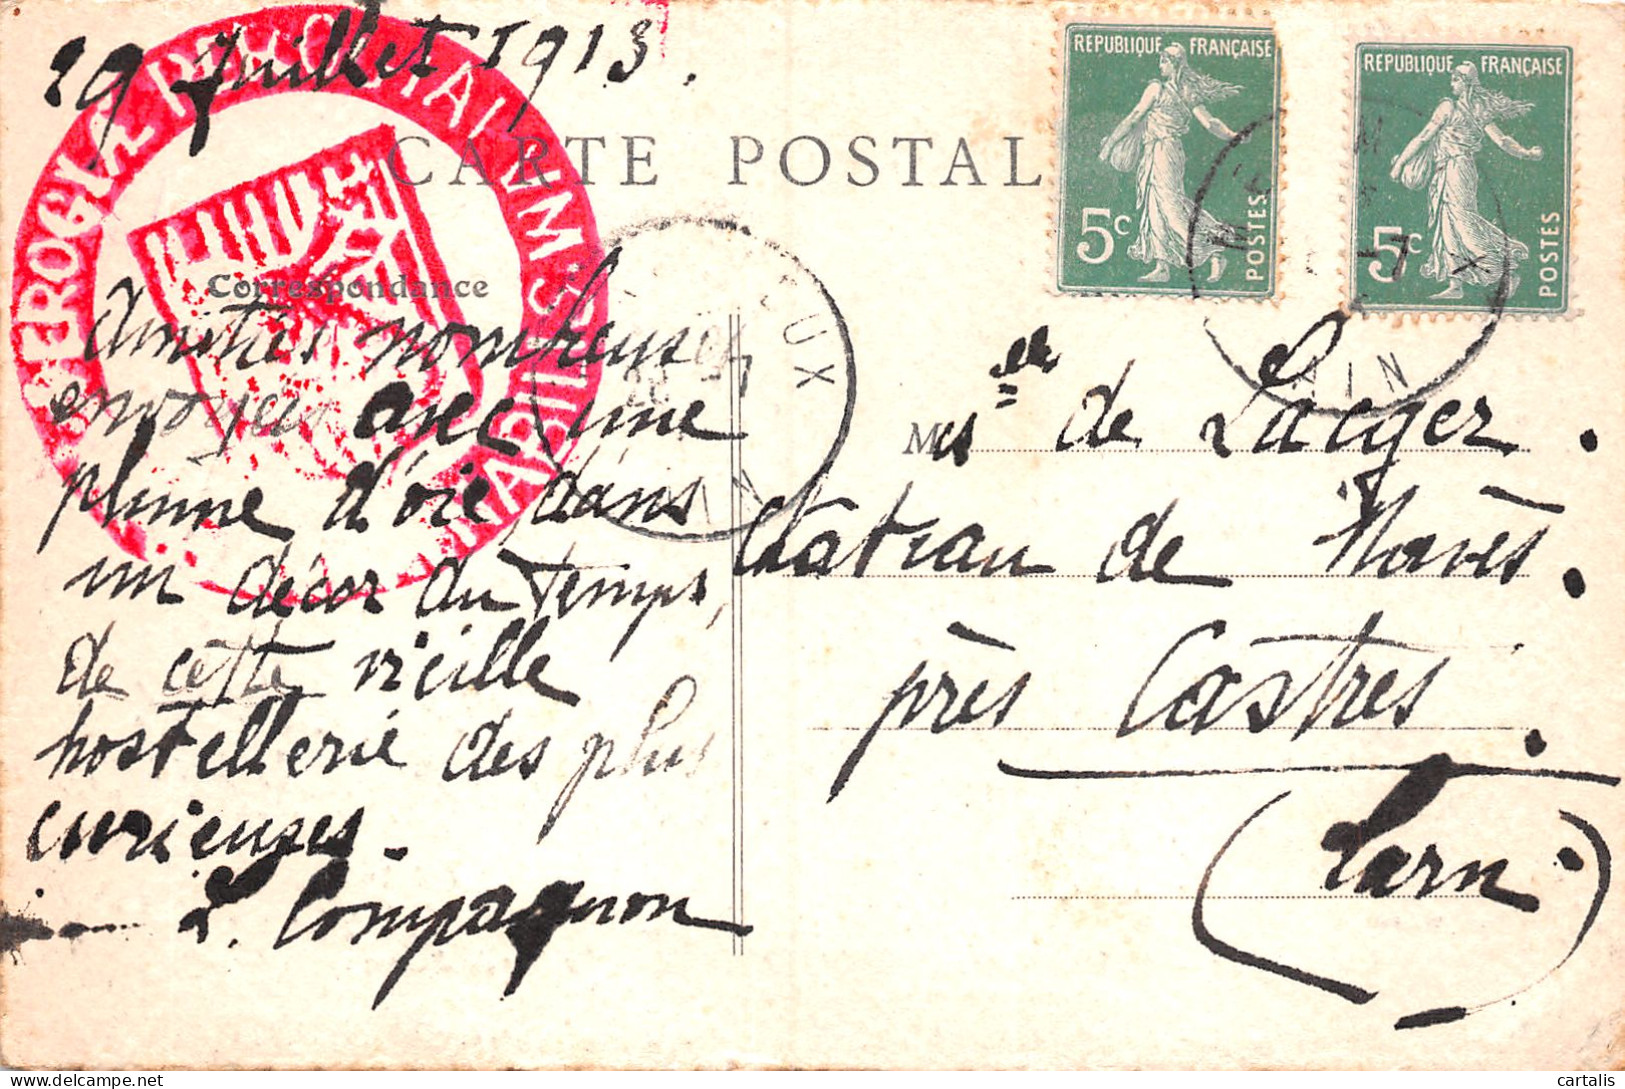 29 Juillet 1913.
CARTE POSTALE
REPUBLIQUE FRANÇAISE
5c
POSTES
REPUBLIQUE FRANÇAISE
5c
POSTES
Correspondance
Amitiés nombreuses
envoyées avec une
plume d'oie dans
un décor du temps,
de cette vieille
hostellerie des plus
curieuses.
L. Compagnon
Melle de Lacger.
château de Navès.
près Castres.
(Tarn)
AIN
AIN
cartalis